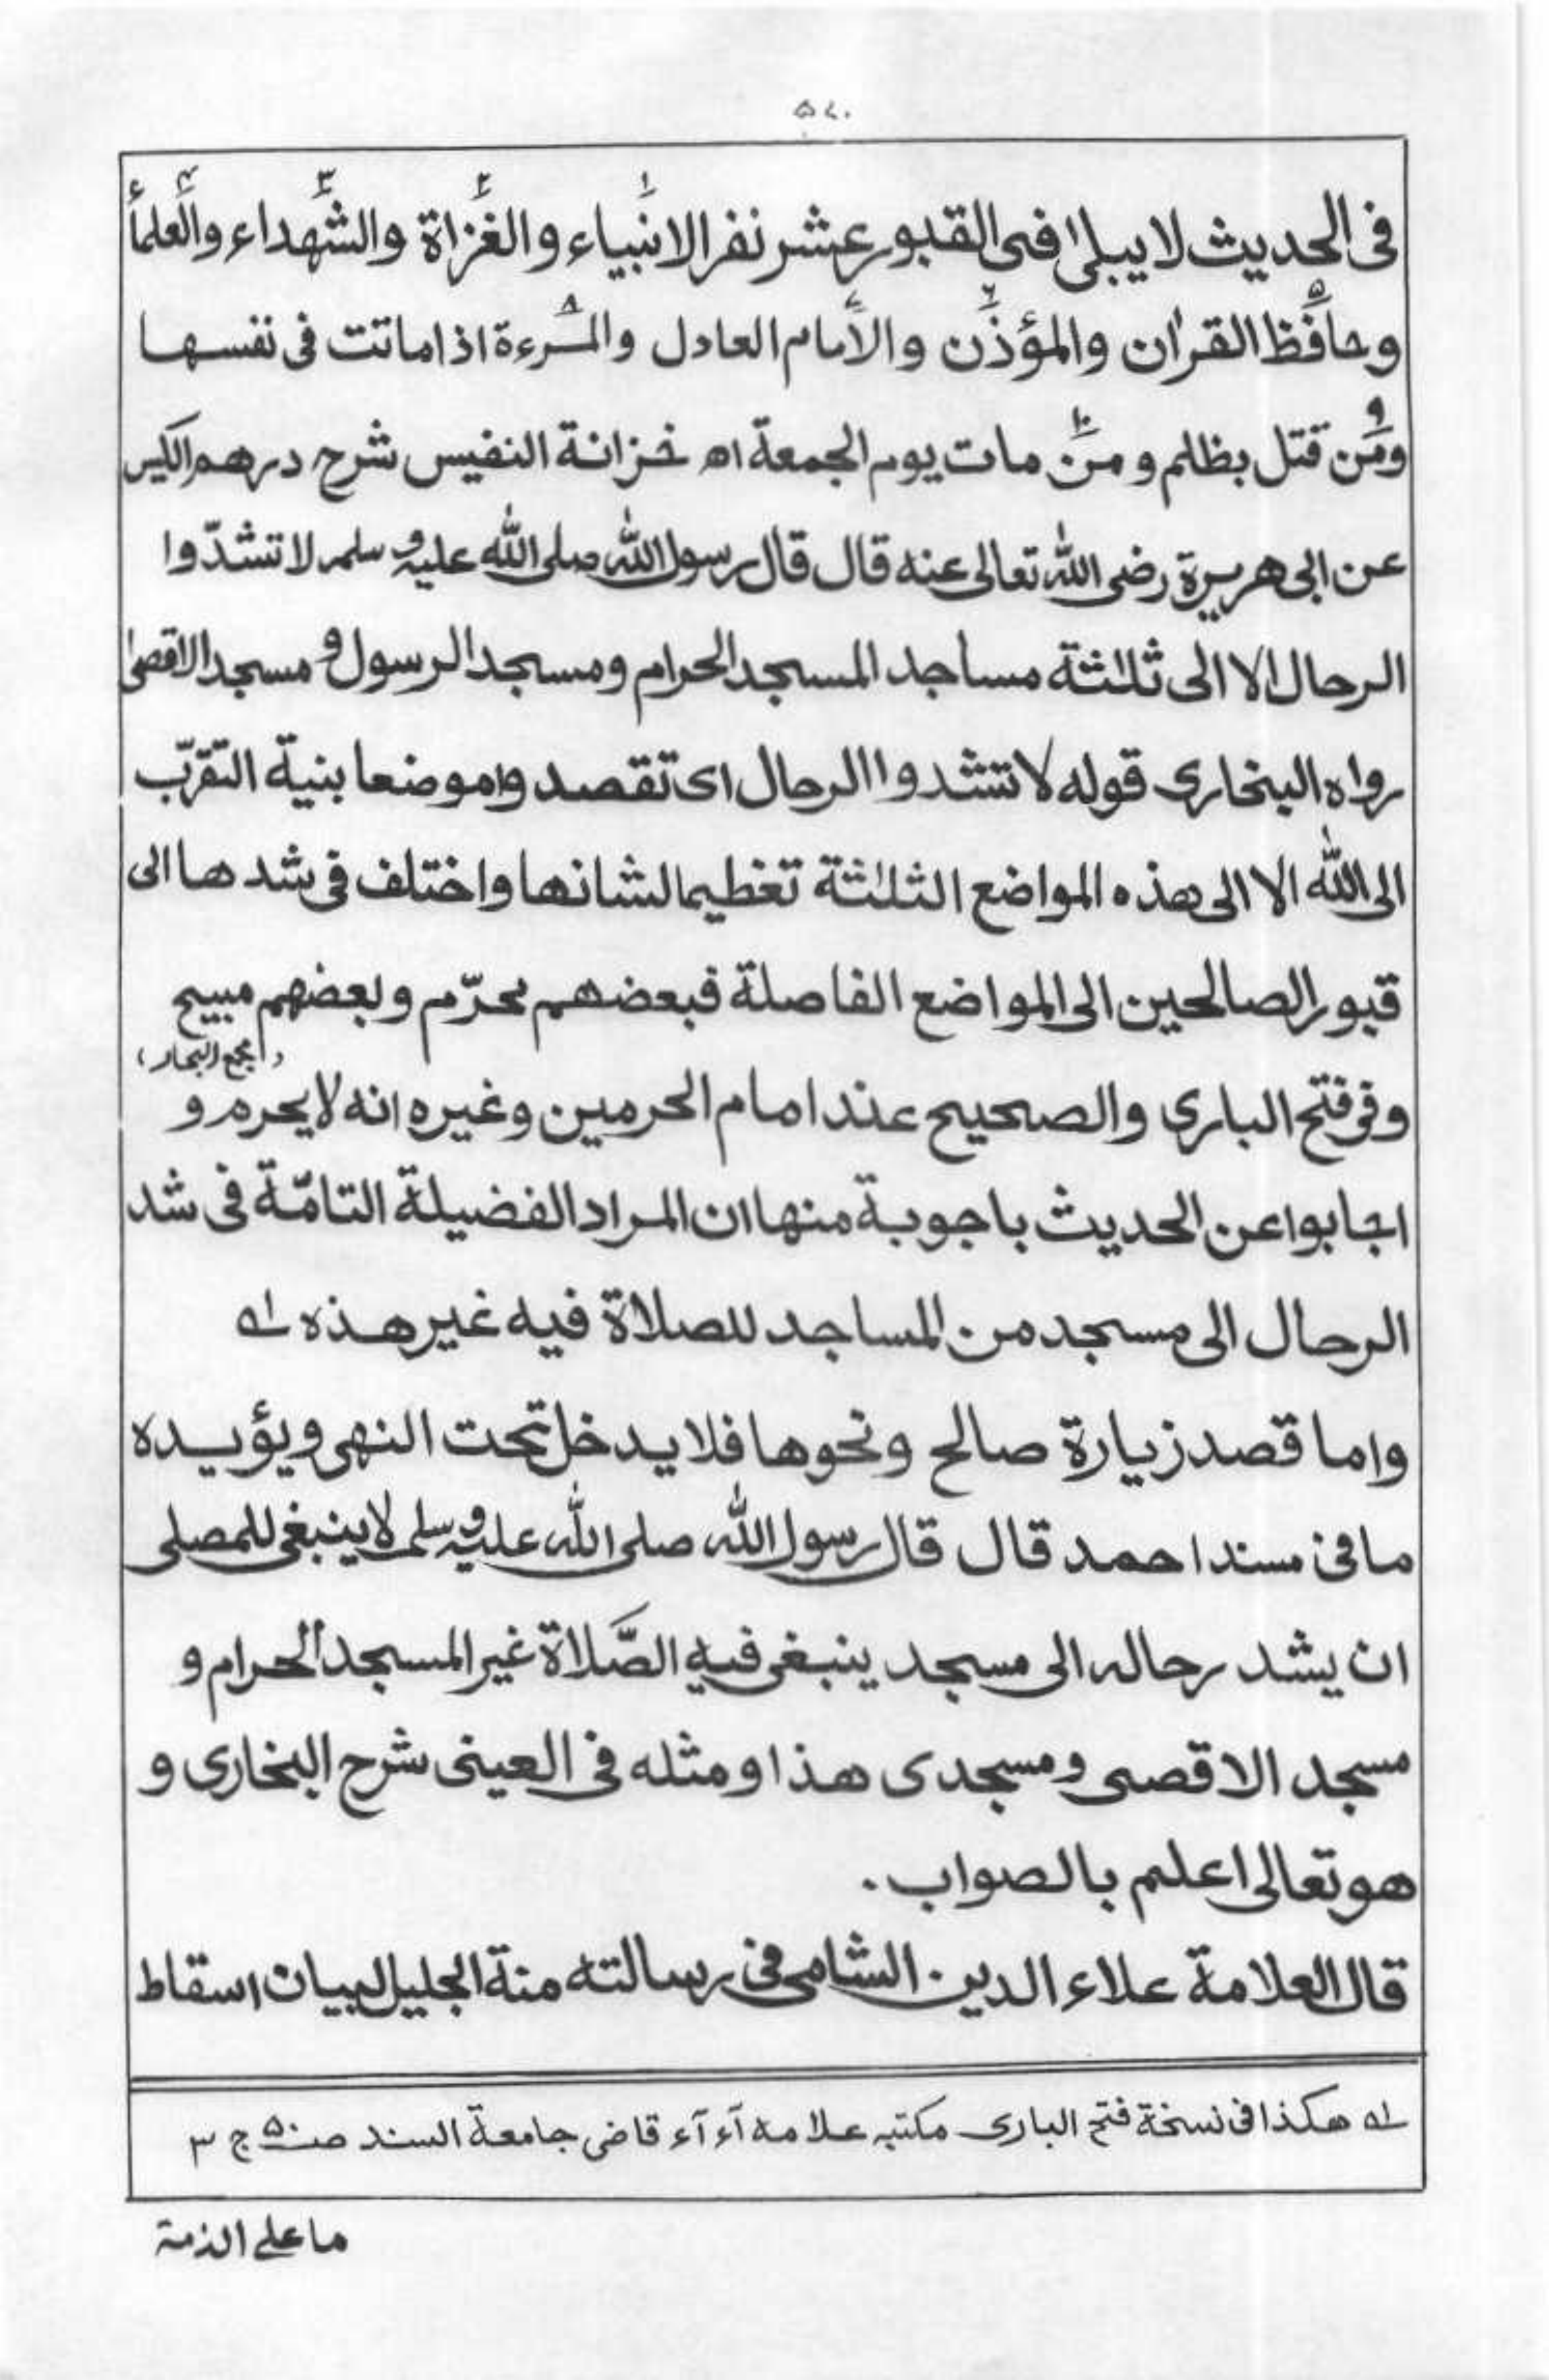 ۵۷۰
فی الحدیث لا یبلیٰ فی القبور عشر نفر الانبیاء۱ والغزاة۲ والشهداء۳ والعلمأ۴
وحافظ۵ القرٰان والمؤذن۶ والامام۷ العادل والمرءة۸ اذا ماتت فی نفسها
ومن۹ قتل بظلم ومن۱۰ مات یوم الجمعة اھ خزانة النفیس شرح درهم الکیس
عن ابی هریرة رضی الله تعالی عنه قال قال رسول الله صلی الله علیه وسلم لا تشدّوا
الرحال الا الی ثلٰثة مساجد المسجد الحرام ومسجد الرسول و مسجد الاقصیٰ
رواه البخاری قوله لا تشدوا الرحال ای تقصدوا موضعا بنیة التقرّب
الی الله الا الی هذه المواضع الثلٰثة تغظیما لشانها واختلف فی شدها الی
قبور الصالحین الی المواضع الفاصلة فبعضهم محرّم وبعضهم مبیح
(مجمع البحار)
وفی فتح الباری والصحیح عند امام الحرمین وغیره انه لا یحرم و
اجابوا عن الحدیث باجوبة منها ان المراد الفضیلة التامّة فی شد
الرحال الی مسجد من المساجد للصلاة فیه غیر هذه لہ
واما قصد زیارة صالح ونحوها فلا یدخل تحت النهی ویؤیده
ما فی مسند احمد قال قال رسول الله صلی الله علیه وسلم لا ینبغی للمصلی
ان یشد رحاله الی مسجد ینبغی فیه الصَّلاة غیر المسجد الحرام و
مسجد الاقصی ومسجدی هذا ومثله فی العینی شرح البخاری و
هو تعالی اعلم بالصواب.
قال العلامة علاء الدین الشامی فی رسالته منة الجلیل لبیان اسقاط
لہ هکذا فی نسخة فتح الباری مکتبه علامه آء آء قاضی جامعة السند ج ۳
ما علی الذمة